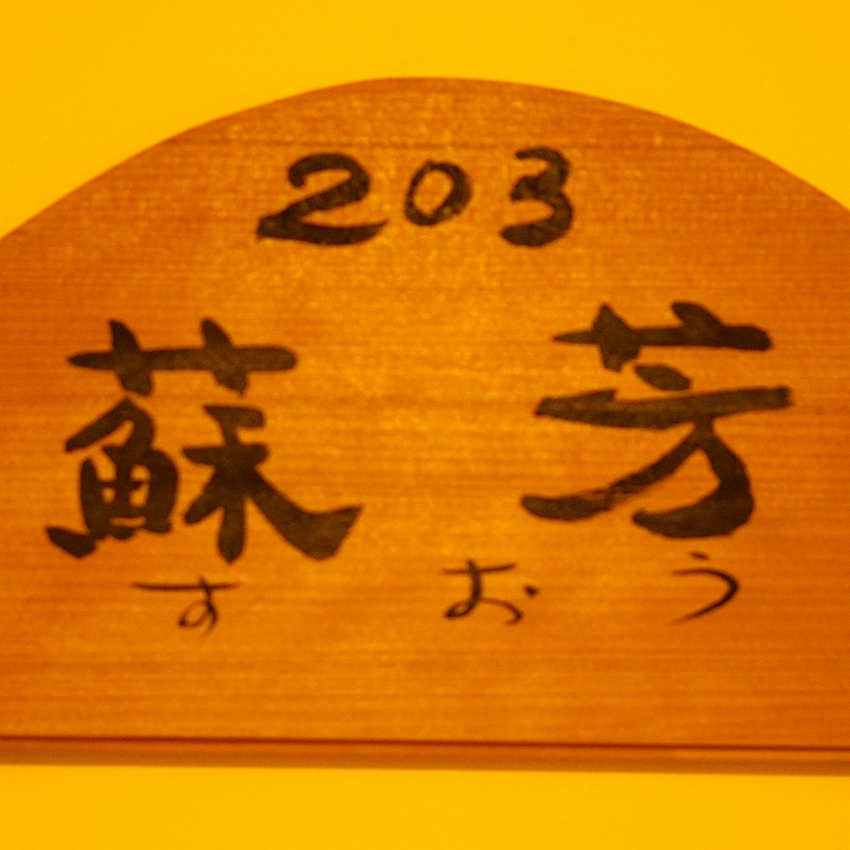 203
蘇芳
すおう